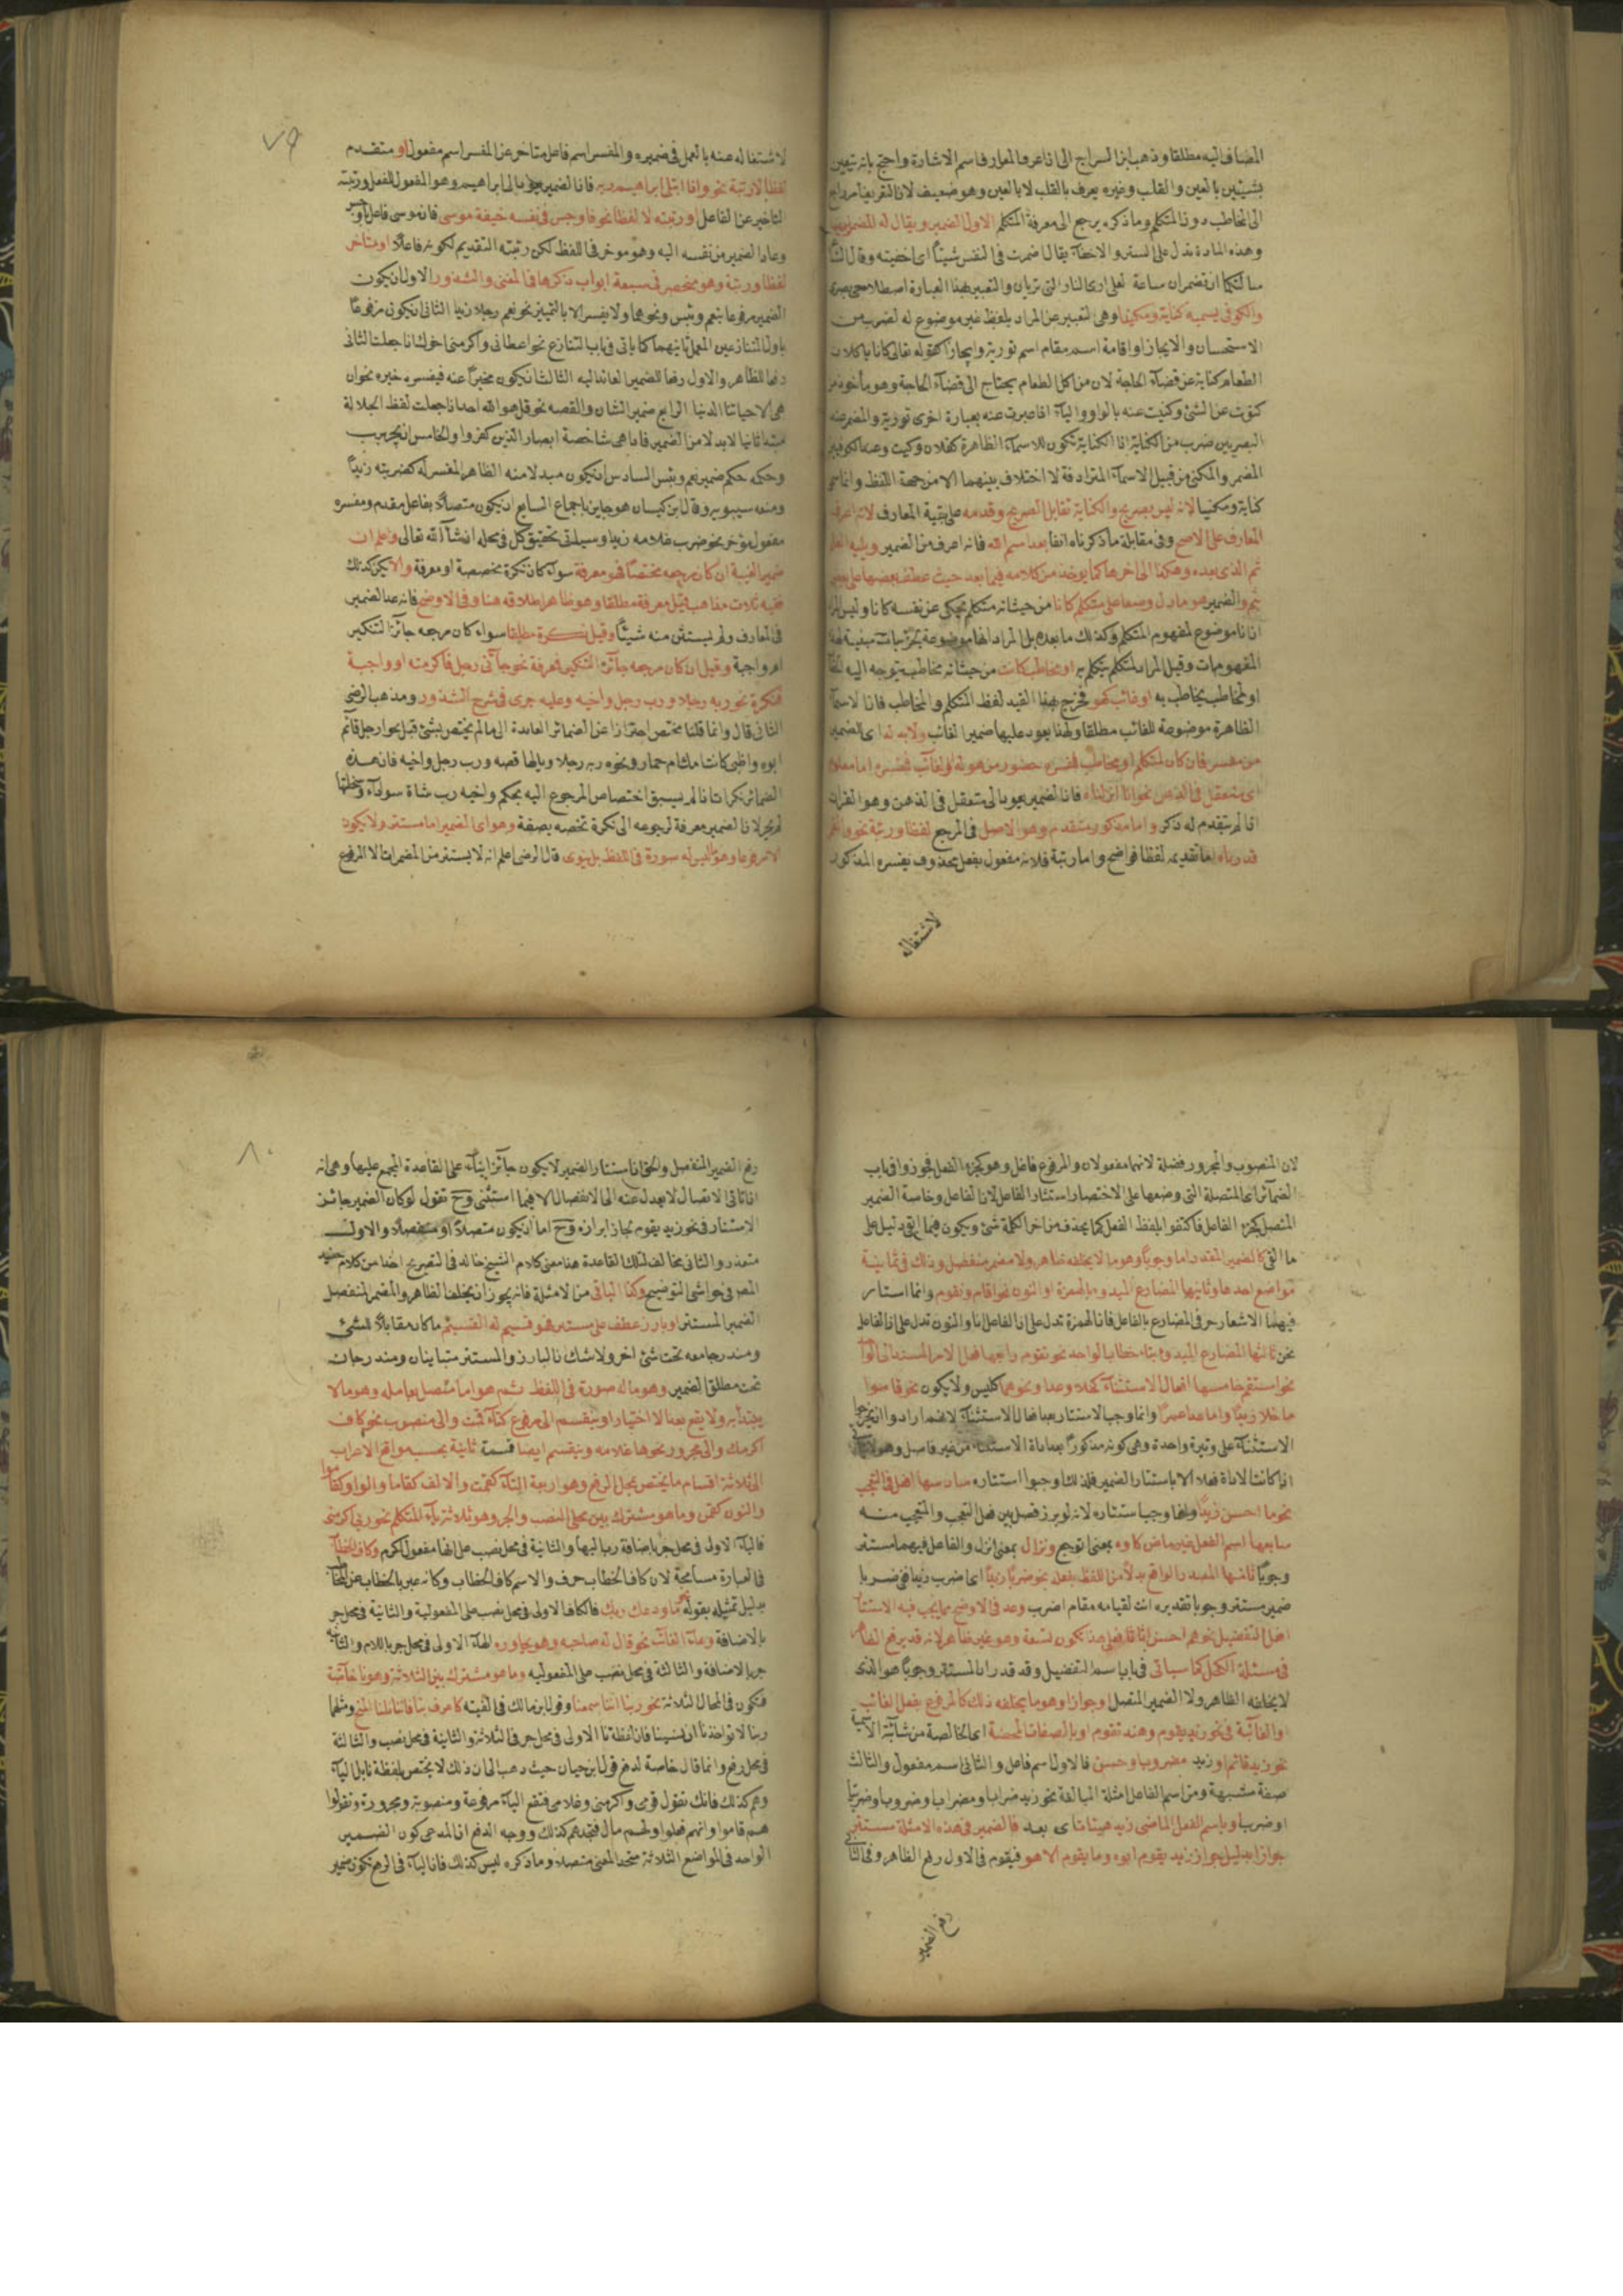 المضاف اليه مطلقا وذهب ابن السراج الى ان اعرف المعارف اسم الاشارة واحتج بانه يتعين
بشيئين بالعين والقلب وغيره يعرف بالقلب لا بالعين وهو ضعيف لان التعريف امر راجع
الى المخاطب دون المتكلم وما ذكره يرجع الى معرفة المتكلم الاول الضمير ويقال له المضمر ايضا
وهذه المادة تدل على الستر والاخفاء يقال اضمرت فى النفس شيئا اى اخفيته وقال
سالتكما ان تضمران ساعة لعلى ارى النار التى تريان والتعبير بهذا العبارة اصطلاحى بصرى
والكوفى يسميه كناية ومكنيا وهى التعبير عن المراد بلفظ غير موضوع له لضرب من
الاستحسان والايجاز او اقامة اسم مقام اسم تورية وايجازا كقوله تعالى كانا ياكلان
الطعام كناية عن قضاء الحاجة لان من اكل الطعام يحتاج الى قضاء الحاجة وهو مأخوذ من
كنوت عن الشئ وكنيت عنه بالواو والياء اذا عبرت عنه بعبارة اخرى تورية والمضمر عند
البصريين ضرب من الكناية اذ الكناية تكون للاسماء الظاهرة كفلان وكيت وعند الكوفيين
المضمر والمكنى من قبيل الاسماء المترادفة لا اختلاف بينهما الا من جهة اللفظ وانما سمى
كناية ومكنيا لانه ليس بصريح والكناية تقابل الصريح وقدمه على بقية المعارف لانه اعرف
المعارف على الاصح وفى مقابلة ما ذكرناه انفا بعد اسم الله فانه اعرف من الضمير ويليه العلم
ثم الذى بعده وهكذا الى اخرها كما يوخذ من كلامه فيما بعد حيث عطف بعضها على بعض
بثم والضمير هو ما دل وضعا على متكلم كانا من حيث انه متكلم يحكى عن نفسه كانا وليس المراد
ان انا موضوع لمفهوم المتكلم وكذلك ما بعده بل المراد انها موضوعة لجزئيات معينة لهذه
المفهومات وقيل المراد المتكلم يتكلم به او مخاطب كانت من حيث انه مخاطب يتوجه اليه
او لمخاطب يخاطب به او غائب كهو فخرج بهذا القيد لفظ المتكلم والمخاطب فان الاسماء
الظاهرة موضوعة للغائب مطلقا ولهذا يعود عليها ضمير الغائب ولابد له اى الضمير
من مفسر فان كان لمتكلم او مخاطب فمفسره حضور من هو له او لغائب فمفسره اما معلوم
اى متعقل فى الذهن نحو انا انزلناه فان الضمير يعود الى متعقل فى الذهن وهو القران
اذ لم يتقدم له ذكر واما مذكور متقدم وهو الاصل فى المرجع لفظا ورتبة نحو والقمر
قدرناه اما تقديمه لفظا فواضح واما رتبة فلانه مفعول بفعل محذوف يفسره المذكور
لاشتغاله
٧٩
لاشتغاله عنه بالعمل فى ضميره والمفسر اسم فاعل متاخر عن المفسر اسم مفعول او متقدم
لفظا لا رتبة نحو واذ ابتلى ابراهيم ربه فان الضمير عائد الى ابراهيم وهو المفعول للفعل ورتبته
التاخير عن الفاعل او رتبته لا لفظا نحو فاوجس فى نفسه خيفة موسى فان موسى فاعل اوجس
وعاد الضمير من نفسه اليه وهو موخر فى اللفظ لكن رتبته التقديم لكونه فاعلا او متاخر
لفظا ورتبة وهو منحصر فى سبعة ابواب ذكرها فى المغنى والشذور الاول ان يكون
الضمير مرفوعا بنعم وبئس ونحوهما ولا يفسر الا بالتمييز نحو نعم رجلا زيد الثانى ان يكون مرفوعا
باول المتنازعين المعمل ثانيهما كما ياتى فى باب التنازع نحو اعطانى واكرمنى اخوك اذا جعلت الثانى
رفعا للظاهر والاول رفعا للضمير العائد اليه الثالث ان يكون مخبرا عنه فيفسره خبره نحو ان
هى الا حياتنا الدنيا الرابع ضمير الشان والقصه نحو قل هو الله احد اذا جعلت لفظ الجلالة
مبتدأ ثانيا لا بدلا من الضمير فاذا هى شاخصة ابصار الذين كفروا والخامس ان يجر برب
وحكمه حكم ضمير نعم وبئس السادس ان يكون مبدلا منه الظاهر المفسر له كضربته زيدا
ومنعه سيبويه وقال ابن كيسان هو جايز باجماع السابع ان يكون متصلا بفاعل مقدم ومفسره
مفعول مؤخر نحو ضرب غلامه زيدا وسيلتى تحقيق كل فى محله ان شاء الله تعالى واعلم ان
ضمير الغيبة ان كان مرجعه مختصا فهو معرفة سواء كان نكرة مخصصة او معرفة والا يكن كذلك
ففيه ثلاث مذاهب قيل معرفة مطلقا وهو ظاهر اطلاقه هنا وفى الاوضح فانه عد الضمير
فى المعارف ولم يستثن منه شيئا وقيل نكرة مطلقا سواء كان مرجعه جائز التنكير
ام واجبة وقيل ان كان مرجعه جائز التنكير فمعرفة نحو جاءنى رجل فاكرمته او واجبة
فنكرة نحو ربه رجلا ورب رجل واخيه وعليه جرى فى شرح الشذور ومذهب الرضى
الثانى قال وانما قلنا مختص احترازا عن الضمائر العائدة الى ما لم يختص بشئ قبل نحو ارجل قائم
ابوه واظبى كانت امك ام حمار ونحوه ربه رجلا ويا لها قصه ورب رجل واخيه فان هذه
الضمائر نكرات اذ لم يسبق اختصاص المرجوع اليه بحكم ولخيه رب شاة سوداء وسخلتها
لم يجز لان الضمير معرفة لرجوعه الى نكرة تخصه بصفة وهو اى الضمير اما مستتر ولا يكون
الا مرفوعا وهو ما ليس له سورة فى اللفظ بل ينوى قال الرضى اعلم انه لا يستتر من المضمرات الا المرفوع
لان المنصوب والمجرور فضلة لانهما مفعولان والمرفوع فاعل وهو كجزء الفعل فجوزوا فى باب
الضمائر اى المتصلة التى وضعها على الاختصار استتار الفاعل لان الفاعل وخاصة الضمير
المتصل كجزء الفاعل فاكتفوا بلفظ الفعل كما يحذف من اخر الكلمة شئ ويكون فيما ابقى دليل على
ما القى كالضمير المقدر اما وجوبا وهو ما لا يخلفه ظاهر ولا مضمر منفصل وذلك فى ثمانية
مواضع احدها وثانيها المضارع المبدوء بالهمزة او النون نحو اقام ونقوم وانما استتار
فيهما الاشعار حرف المضارع بالفاعل فان الهمزة تدل على ان الفاعل انا والنون تدل على ان الفاعل
نحن ثالثها المضارع المبدوء بتاء خطاب الواحد نحو تقوم رابعها فعل الامر المسند الى الواحد
نحو استقم خامسها افعال الاستثناء كخلا وعدا ونحوهما كليس ولا يكون نحو قاموا
ما خلا زيدا وما عدا عمرا وانما وجب الاستتار بعد افعال الاستثناء لانهم ارادوا ان يجروا
الاستثناء على وتيرة واحدة وهى كونه مذكورا بعد اداة الاستثناء من غير فاصل وهو
اذا كانت الاداة فعلا الا باستتار الضمير فلذلك وجبوا استتاره سادسها افعل فى التعجب
نحو ما احسن زيدا وانما وجب استتاره لانه لو برز فصل بين فعل التعجب والمتعجب منه
سابعها اسم الفعل غير ماض كاوه بمعنى اتوجع ونزال بمعنى انزل والفاعل فيهما مستتر
وجوبا ثامنها المصدر الواقع بدلا من اللفظ بفعله نحو ضربا زيدا اى اضرب زيدا ففى ضربا
ضمير مستتر وجوبا تقديره انت لقيامه مقام اضرب وعد فى الاوضح مما يجب فيه الاستتار
افعل التفضيل نحو هم احسن اثاثا فعلى هذا تكون تسعة وهو غير ظاهر لانه قد يرفع الظاهر
فى مسئلة الكحل كما سياتى فى باب اسم التفضيل وقد قدر ان المستتر وجوبا هو الذى
لا يخلفه الظاهر ولا الضمير المتصل او جوازا وهو ما يخلفه ذلك كالمرفوع بفعل الغائب
والغائبة فى نحو زيد يقوم وهند تقوم او بالصفات المحضة اى الخالصة من شائبة الاسمية
نحو زيد قائم او زيد مضروب او حسن فالاول اسم فاعل والثانى اسم مفعول والثالث
صفة مشبهة ومن اسم الفاعل امثلة المبالغة نحو زيد ضراب او مضراب او ضروب او
او ضرب او باسم الفعل الماضى زيد هيهات اى بعد فالضمير فى هذه الامثلة مستتر
جوازا بدليل جواز زيد يقوم ابوه وما يقوم الا هو فيقوم فى الاول رفع الظاهر وفى الثانى
رفع الضمير
٨٠
رفع الضمير المنفصل والحق ان استتار الضمير لا يكون جائزا بناء على القاعدة المجمع عليها وهى انه
اذا تاتى الاتصال لا يعدل عنه الى الانفصال الا فيما استثنى وح تقول لو كان الضمير جائز
الاستتار فى نحو زيد يقوم لجاز ابرازه وح اما ان يكون متصلا او منفصلا والاول
متعذر والثانى مخالف لتلك القاعدة هذا معنى كلام الشيخ خالد فى التصريح اخذا من كلام حفيد
المصـ فى حواشى التوضيح وكذا الباقى من الامثلة فانه يجوز ان يخلفها الظاهر والمضمر المنفصل
الضمير المستتر او بارز عطف على مستتر هو قسيم له القسيم ما كان مقابلا للشئ
ومندرجا معه تحت شئ اخر ولا شك ان البارز والمستتر متباينان ومندرجان
تحت مطلق الضمير وهو ما له صورة فى اللفظ ثم هو اما متصل بعامله وهو ما لا
يبتدأ به ولا يقع بعد الا اختيارا وينقسم الى مرفوع كتاء قمت والى منصوب نحو كاف
اكرمك والى مجرور نحو هاء غلامه وينقسم ايضا قسمة ثانية بحسب مواقع الاعراب
الى ثلاثة اقسام ما يختص بمحل الرفع وهو اربعة التاء كقمت والالف كقاما والواو كقاموا
والنون كقمن وما هو مشترك بين محلى النصب والجر وهو ثلاثة ياء المتكلم نحو ربى اكرمنى
فالياء الاولى فى محل جر باضافة رب اليها والثانية فى محل نصب على انها مفعول اكرم وكاف الخطاب
فى العبارة مسامحة لان كاف الخطاب حرف والاسم كاف الخطاب وكانه عبر بالخطاب عن المخاطب
بدليل تمثيله بقوله ما ودعك ربك فالكاف الاولى فى محل نصب على المفعولية والثانية فى محل جر
بالاضافة وهاء الغائب نحو قال له صاحبه وهو يحاوره الهاء الاولى فى محل جر باللام والثانية
جر بالاضافة والثالثة فى محل نصب على المفعوليه وما هو مشترك بين الثلاثة وهو نا خاصة
فتكون فى المحال الثلاثة نحو ربنا اننا سمعنا وقول ابن مالك فى الفيته كاعرف بنا فاننا نلنا المنح ومثلها
ربنا لا تواخذنا ان نسينا فان لفظة نا الاولى فى محل جر فى الثلاثة والثانية فى محل نصب والثالثة
فى محل رفع وانما قال خاصة لدفع قول ابن حيان حيث ذهب الى ان ذلك لا يختص بلفظة نا بل الياء
وهم كذلك فانك تقول قومى واكرمنى وغلامى فتقع الياء مرفوعة ومنصوبة ومجرورة وتقول
هم قاموا وانهم فعلوا ولهم مال فتجدهم كذلك ووجه الدفع ان المدعى كون الضمير
الواحد فى المواضع الثلاثة متحد المعنى متصلا وما ذكره ليس كذلك فان الياء فى الرفع تكون ضمير